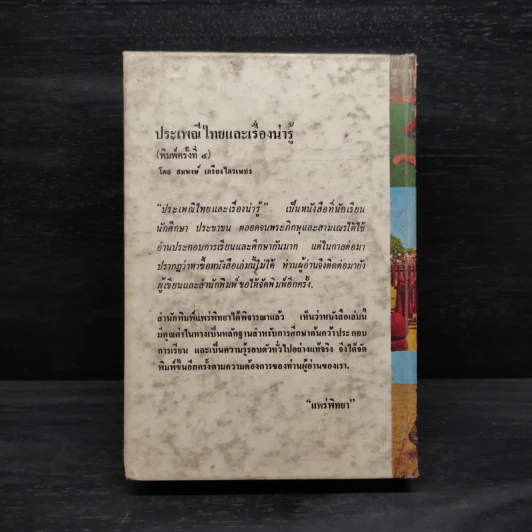 ประเพณีไทยและเรื่องน่ารู้
(พิมพ์ครั้งที่ ๔)
โดย สมพงษ์ เกรียงไกรเพชร
"ประเพณีไทยและเรื่องน่ารู้" เป็นหนังสือที่นักเรียน
นักศึกษา ประชาชน ตลอดจนพระภิกษุและสามเณรได้ใช้
อ่านประกอบการเรียนและศึกษากันมาก แต่ในกาลต่อมา
ปรากฏว่าหาซื้อหนังสือเล่มนี้ไม่ได้ ท่านผู้อ่านจึงติดต่อมายัง
ผู้เขียนและสำนักพิมพ์ ขอให้จัดพิมพ์อีกครั้ง.
สำนักพิมพ์แพร่พิทยาได้พิจารณาแล้ว เห็นว่าหนังสือเล่มนี้
มีคุณค่าในทางเป็นหลักฐานสำหรับการศึกษาค้นคว้าประกอบ
การเรียน และเป็นความรู้รอบตัวทั่วไปอย่างแท้จริง จึงได้จัด
พิมพ์ขึ้นอีกครั้งตามความต้องการของท่านผู้อ่านของเรา.
"แพร่พิทยา"